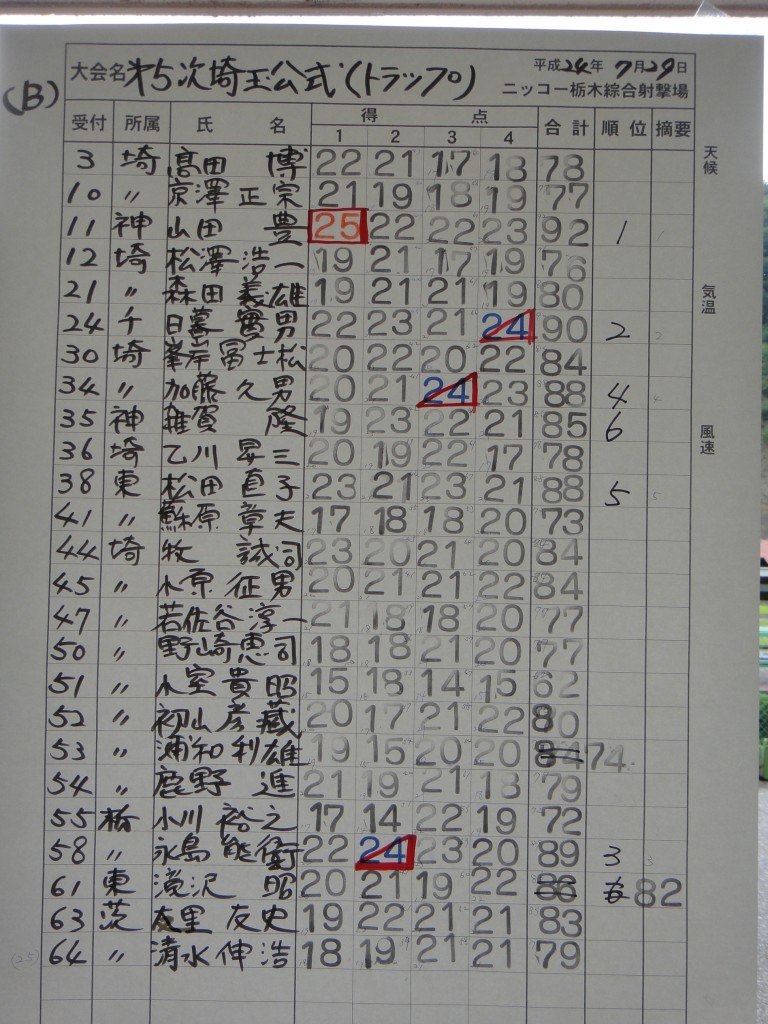 (B)
大会名 第5次埼玉公式(トラップ) 平成24年7月29日
ニッコー栃木綜合射撃場
受付 所属 氏名 得点 合計 順位 摘要
1 2 3 4
天候
気温
風速
3 埼 髙田 博 22 21 17 18 78
10 〃 京澤 正宗 21 19 18 19 77
11 神 山田 豊 25 22 22 23 92 1
12 埼 松澤 浩一 19 21 17 19 76
21 〃 森田 義雄 19 21 21 19 80
24 千 日暮 實男 22 23 21 24 90 2
30 埼 峯岸 冨士松 20 22 20 22 84
34 〃 加藤 久男 20 21 24 23 88 4
35 神 雑賀 隆 19 23 22 21 85 6
36 埼 乙川 昇三 20 19 22 17 78
38 東 松田 直子 23 21 23 21 88 5
41 〃 蘇原 章夫 17 18 18 20 73
44 埼 牧 誠司 23 20 21 20 84
45 〃 小原 征男 20 21 21 22 84
47 〃 若佐谷 淳一 21 18 18 20 77
50 〃 野崎 恵司 18 18 21 20 77
51 〃 小室 貴昭 15 18 14 15 62
52 〃 初山 彦蔵 20 17 21 22 80
53 〃 浦和 利雄 19 15 20 20 84 74
54 〃 鹿野 進 21 19 21 18 79
55 栃 小川 裕之 17 14 22 19 72
58 〃 永島 能衛 22 24 23 20 89 3
61 東 滝沢 昭 20 21 19 22 86 6 82
63 茨 友里 友史 19 22 21 21 83
64 〃 清水 伸浩 18 19 21 21 79